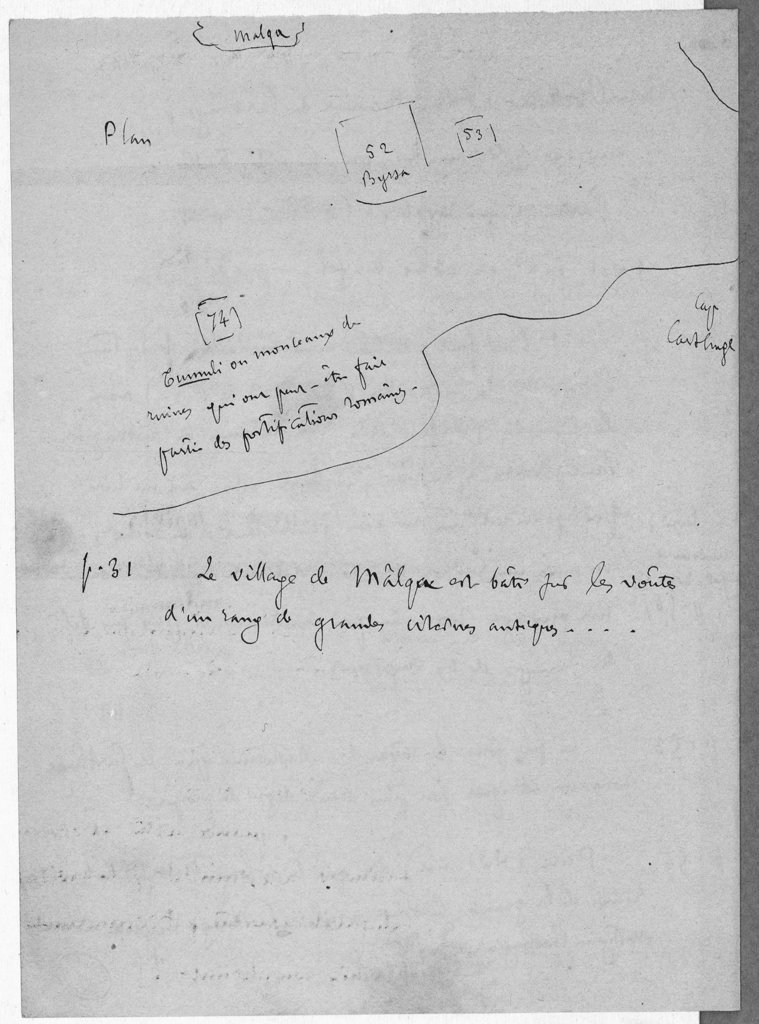 Malga
Plan
52
Byrsa
[53]
[74]
Tumuli ou monceaux de
ruines qui ont peut-être fait
partie des fortifications romaines.
Cap
Carthage
p. 31 Le village de Mâlqa est bâti sur les voûtes
d'un rang de grandes citernes antiques....